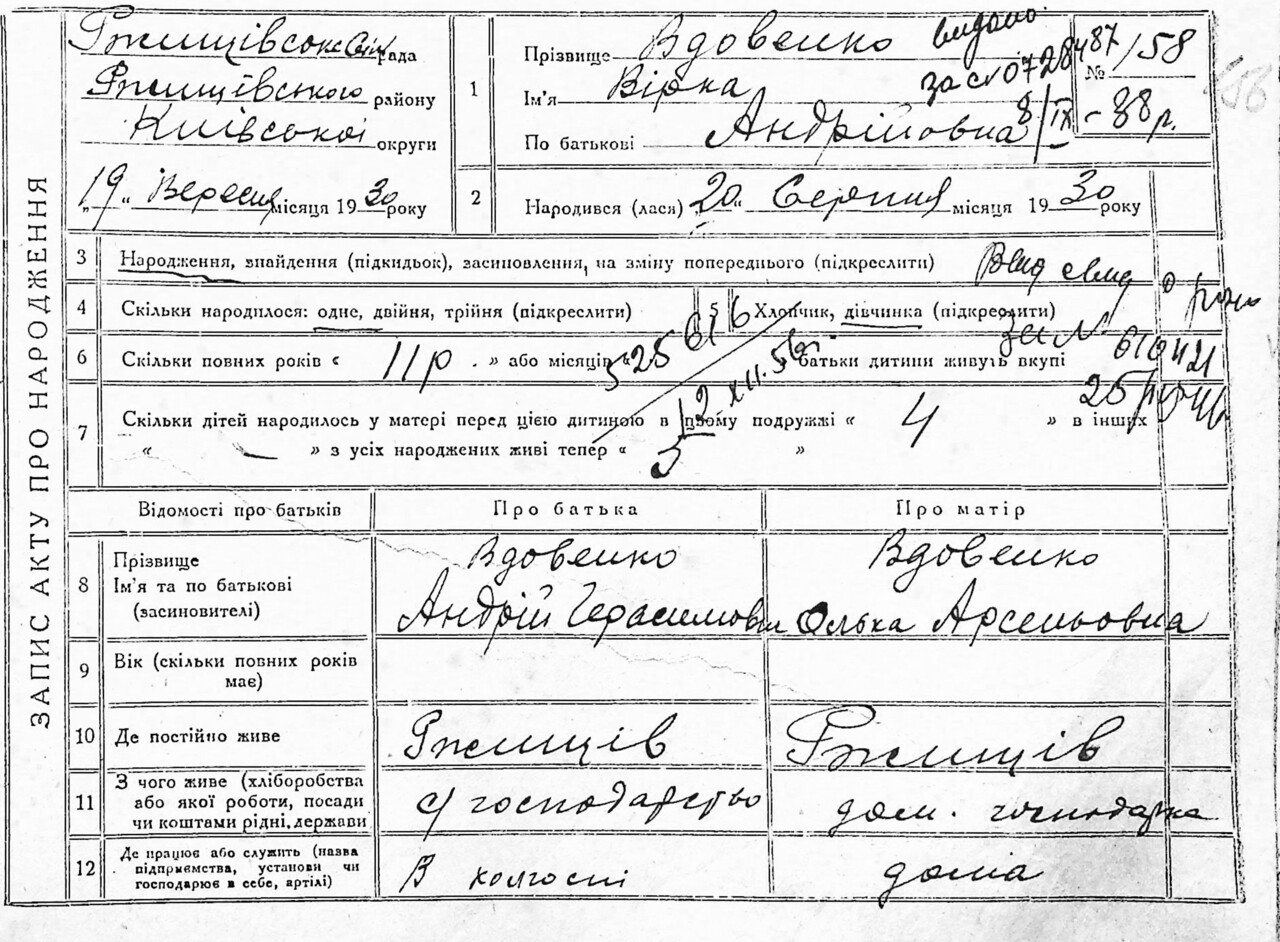 ЗАПИС АКТУ ПРО НАРОДЖЕННЯ
Ржищівська Сільрада
Ржищівського району
Київської округи
„19“ Вересня місяця 1930 року
1
Прізвище Вдовенко
Ім'я Вірка
По батькові Андрійовна
видано
№ /58
8/IX - 88 р.
2
Народився (лася) „20“ Серпня місяця 1930 року
3
Народження, знайдення (підкидьок), засиновлення, на зміну попереднього (підкреслити)
4
Скільки народилося: одне, двійня, трійня (підкреслити)
5
Хлопчик, дівчинка (підкреслити)
6
Скільки повних років « 11р. » або місяців
батьки дитини живуть вкупі
12 XII.56г.
7
Скільки дітей народилось у матері перед цією дитиною в цьому подружжі « 4 » в інших
« — » з усіх народжених живі тепер « 3 »
Відомості про батьків
Про батька
Про матір
8
Прізвище
Ім'я та по батькові
(засиновителі)
Вдовенко
Андрій Герасимович
Вдовенко
Олька Арсеньовна
9
Вік (скільки повних років
має)
10
Де постійно живе
Ржищів
Ржищів
11
З чого живе (хліборобства
або якої роботи, посади
чи коштами рідні, держави
с/господарство
дом. господарка
12
Де працює або служить (назва
підприємства, установи чи
господарює в себе, артілі)
В колгоспі
дома